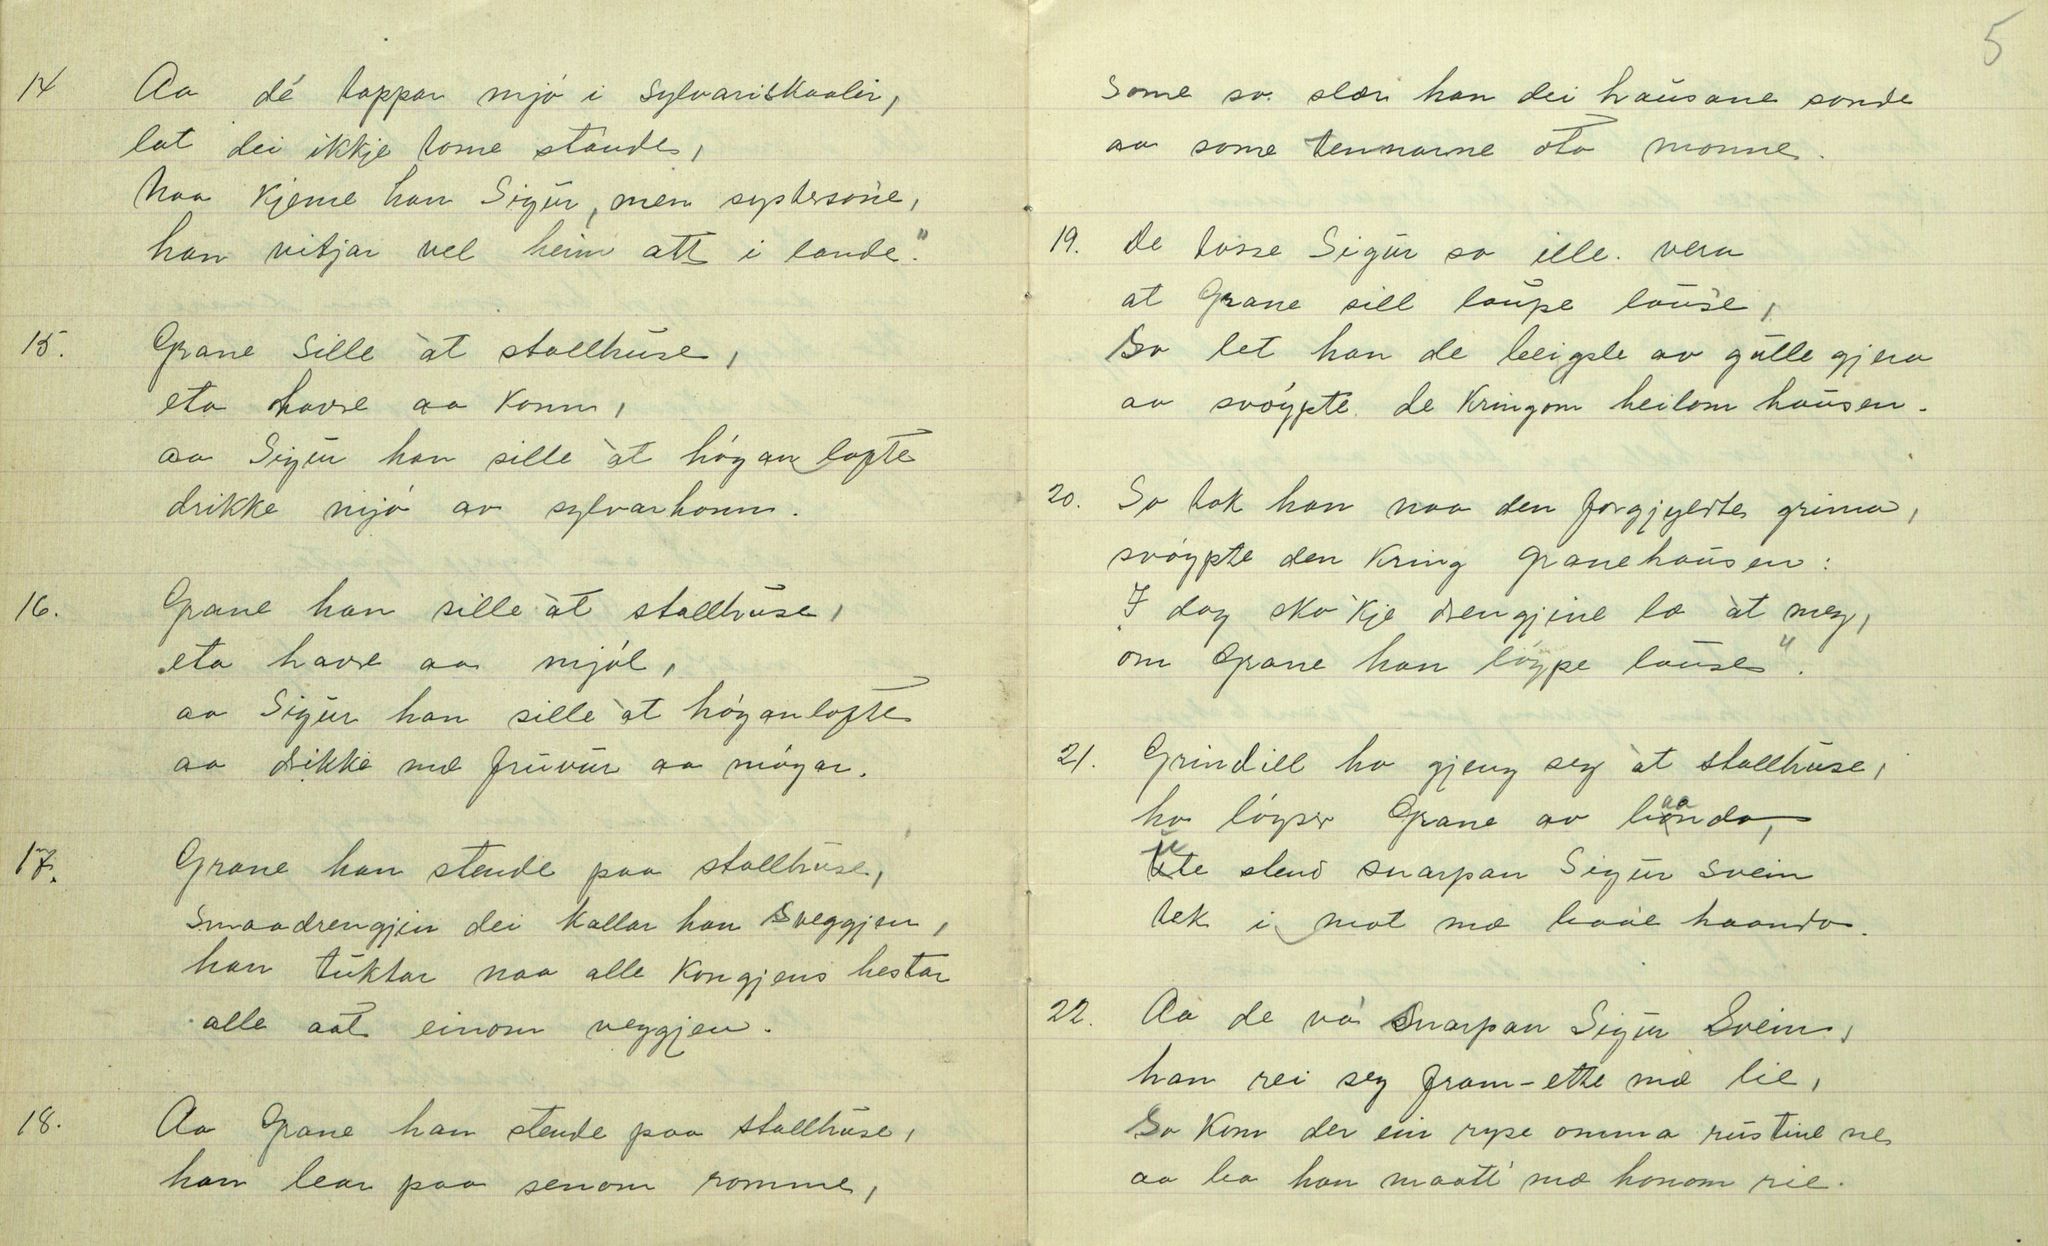 14 Aa dé tappar mjó i sylvariskaalir,
lat dei ikkje tome stande,
naa kjeme han Sigūr, men systersone,
han vitjar vel heim att i lande."
15. Grane sille àt stallhūse,
eta havre aa konn,
aa Sigūr han sille àt hógan lofte
drikke mjó av sylvarhonn.
16. Grane han sille àt stallhūse,
eta havre aa mjól,
aa Sigūr han sille àt hóganlofte
aa drikke mæ frūvūr aa móyar.
17. Grane han stende paa stallhūse,
smaadrengjin dei kallar han Sveggjen,
han tūktar naa alle kongjens hestar
alle aat einom veggjen.
18. Aa Grane han stende paa stallhūse,
han lear paa senom romme,
5
some so slær han dei haūsane sonde
aa some tennarne óta monne.
19. De tosse Sigūr so ille vera
at Grane sill laūpe laūse,
so let han de beigsle av gūlle gjera
aa svóypte de kringom heilom haūsen.
20. So tok han naa den forgjyldte grima,
svóypte den kring Granehaūsen:
"I dag ska 'kje drengjine læ àt meg,
om Grane han lóype laūse".
21. Grindill ho gjeng seg àt stallhūse,
ho lóyser Grane av baando,
ūte stend snarpan Sigūr svein
tek i mot mæ baae haando.
22. Aa de va snarpan Sigūr Svein,
han rei seg fram-ette mæ lie,
so kom der ein rype omma rūstine ne
aa ba han maatt mæ honom rie.